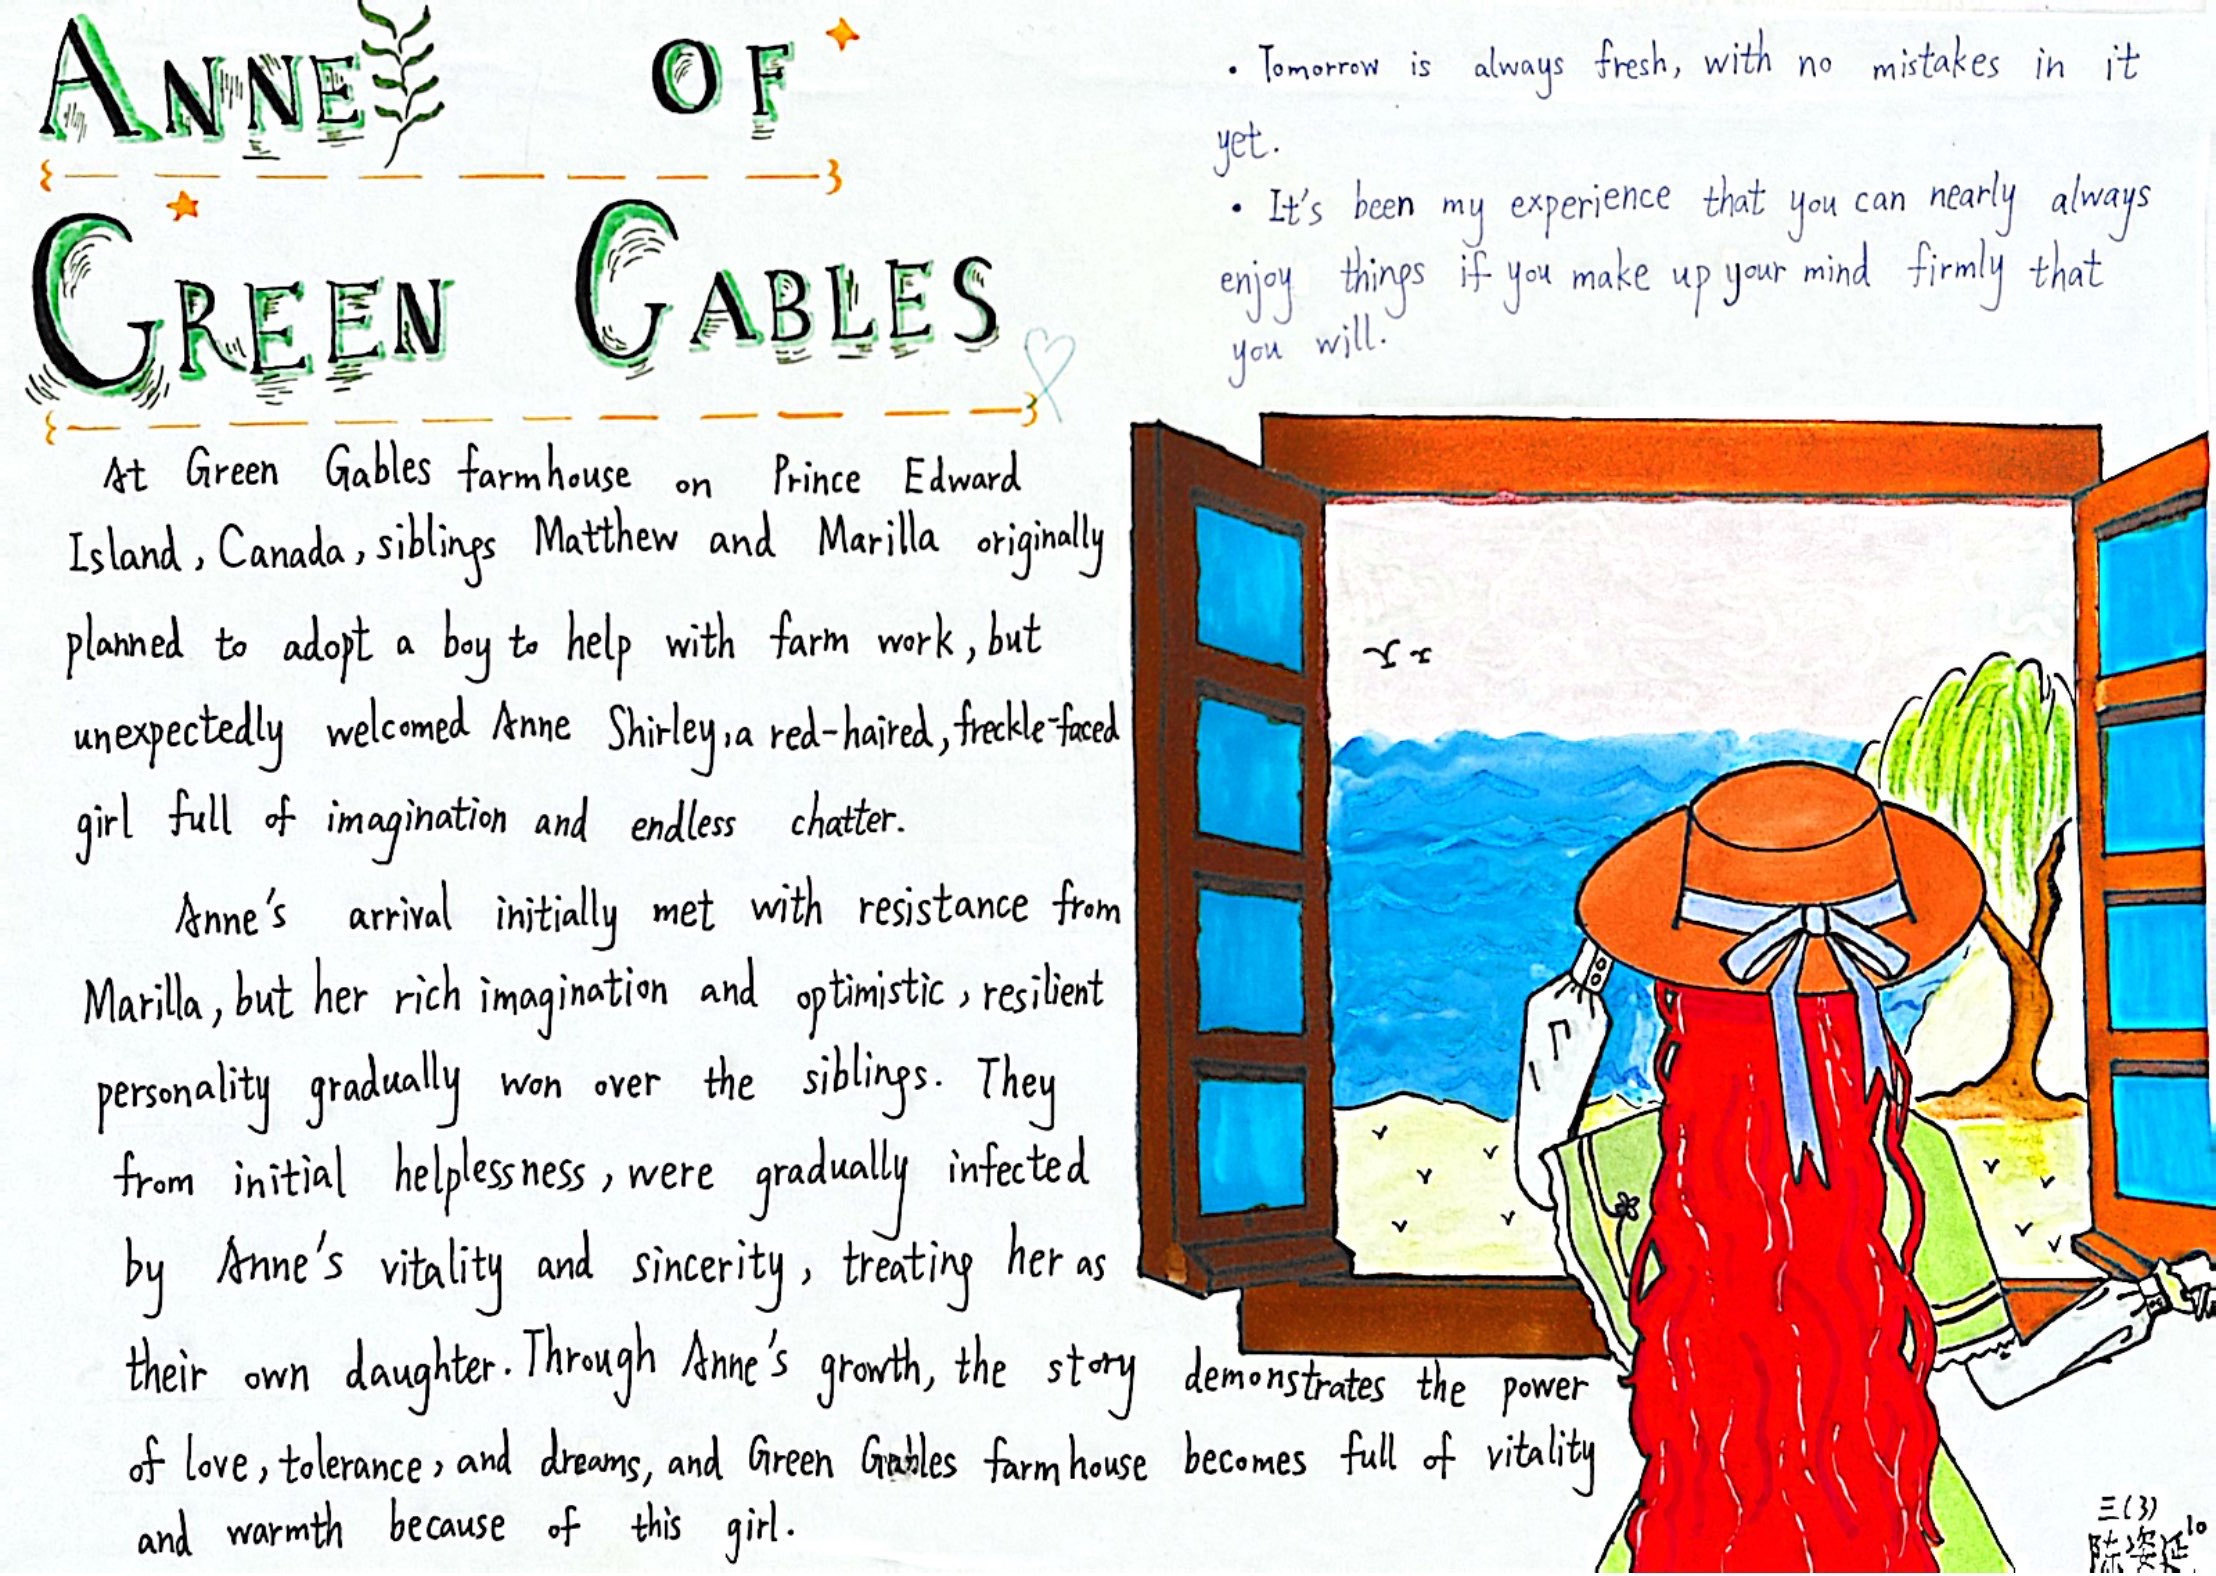 ANNE OF
GREEN GABLES
At Green Gables farmhouse on Prince Edward
Island, Canada, siblings Matthew and Marilla originally
planned to adopt a boy to help with farm work, but
unexpectedly welcomed Anne Shirley, a red-haired, freckle-faced
girl full of imagination and endless chatter.
Anne's arrival initially met with resistance from
Marilla, but her rich imagination and optimistic, resilient
personality gradually won over the siblings. They
from initial helplessness, were gradually infected
by Anne's vitality and sincerity, treating her as
their own daughter. Through Anne's growth, the story demonstrates the power
of love, tolerance, and dreams, and Green Gables farmhouse becomes full of vitality
and warmth because of this girl.
• Tomorrow is always fresh, with no mistakes in it
yet.
• It's been my experience that you can nearly always
enjoy things if you make up your mind firmly that
you will.
三(3)
陈姿延 10